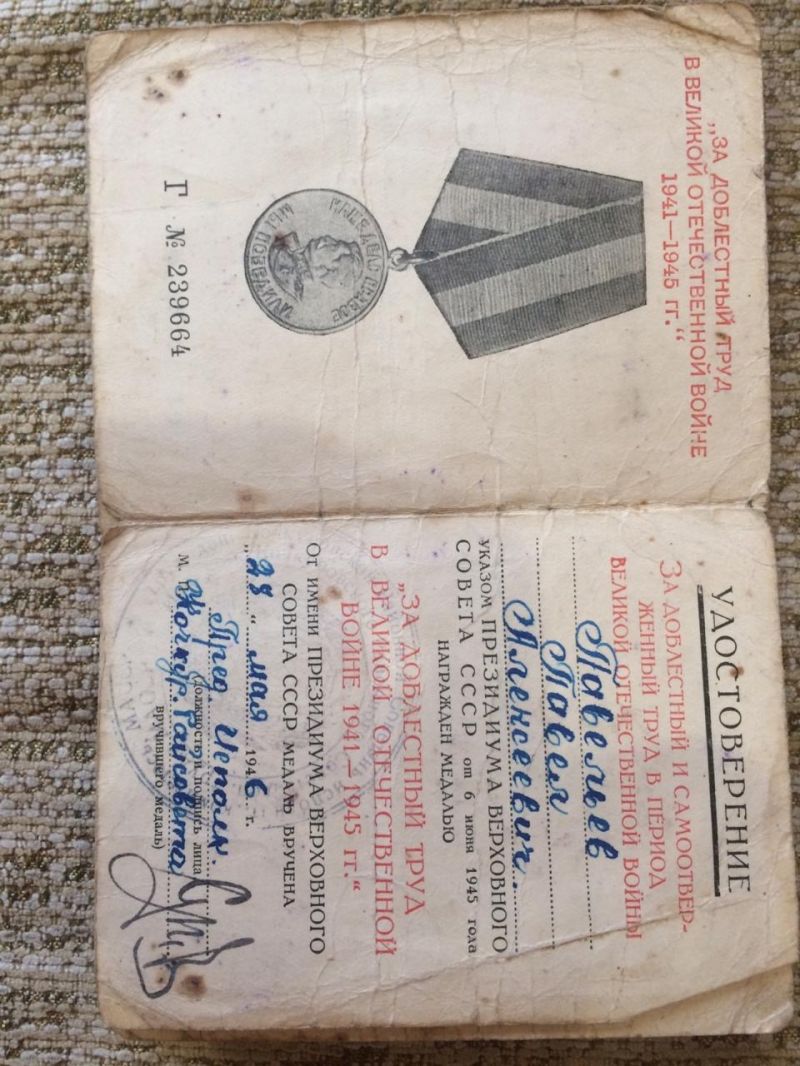 „ЗА ДОБЛЕСТНЫЙ ТРУД
В ВЕЛИКОЙ ОТЕЧЕСТВЕННОЙ ВОЙНЕ
1941—1945 гг.“
НАШЕ ДЕЛО ПРАВОЕ
МЫ ПОБЕДИЛИ
Г № 239664
УДОСТОВЕРЕНИЕ
ЗА ДОБЛЕСТНЫЙ И САМООТВЕР-
ЖЕННЫЙ ТРУД В ПЕРИОД
ВЕЛИКОЙ ОТЕЧЕСТВЕННОЙ ВОЙНЫ
Павельев
Павел
Алексеевич.
УКАЗОМ ПРЕЗИДИУМА ВЕРХОВНОГО
СОВЕТА СССР от 6 июня 1945 года
НАГРАЖДЕН МЕДАЛЬЮ
„ЗА ДОБЛЕСТНЫЙ ТРУД
В ВЕЛИКОЙ ОТЕЧЕСТВЕННОЙ
ВОЙНЕ 1941—1945 гг.“
От ИМЕНИ ПРЕЗИДИУМА ВЕРХОВНОГО
СОВЕТА СССР МЕДАЛЬ ВРУЧЕНА
„28“ мая 1946 г.
Пред. Исполк.
М. П. (Должность и подпись лица,
Райсовета
вручившего медаль)